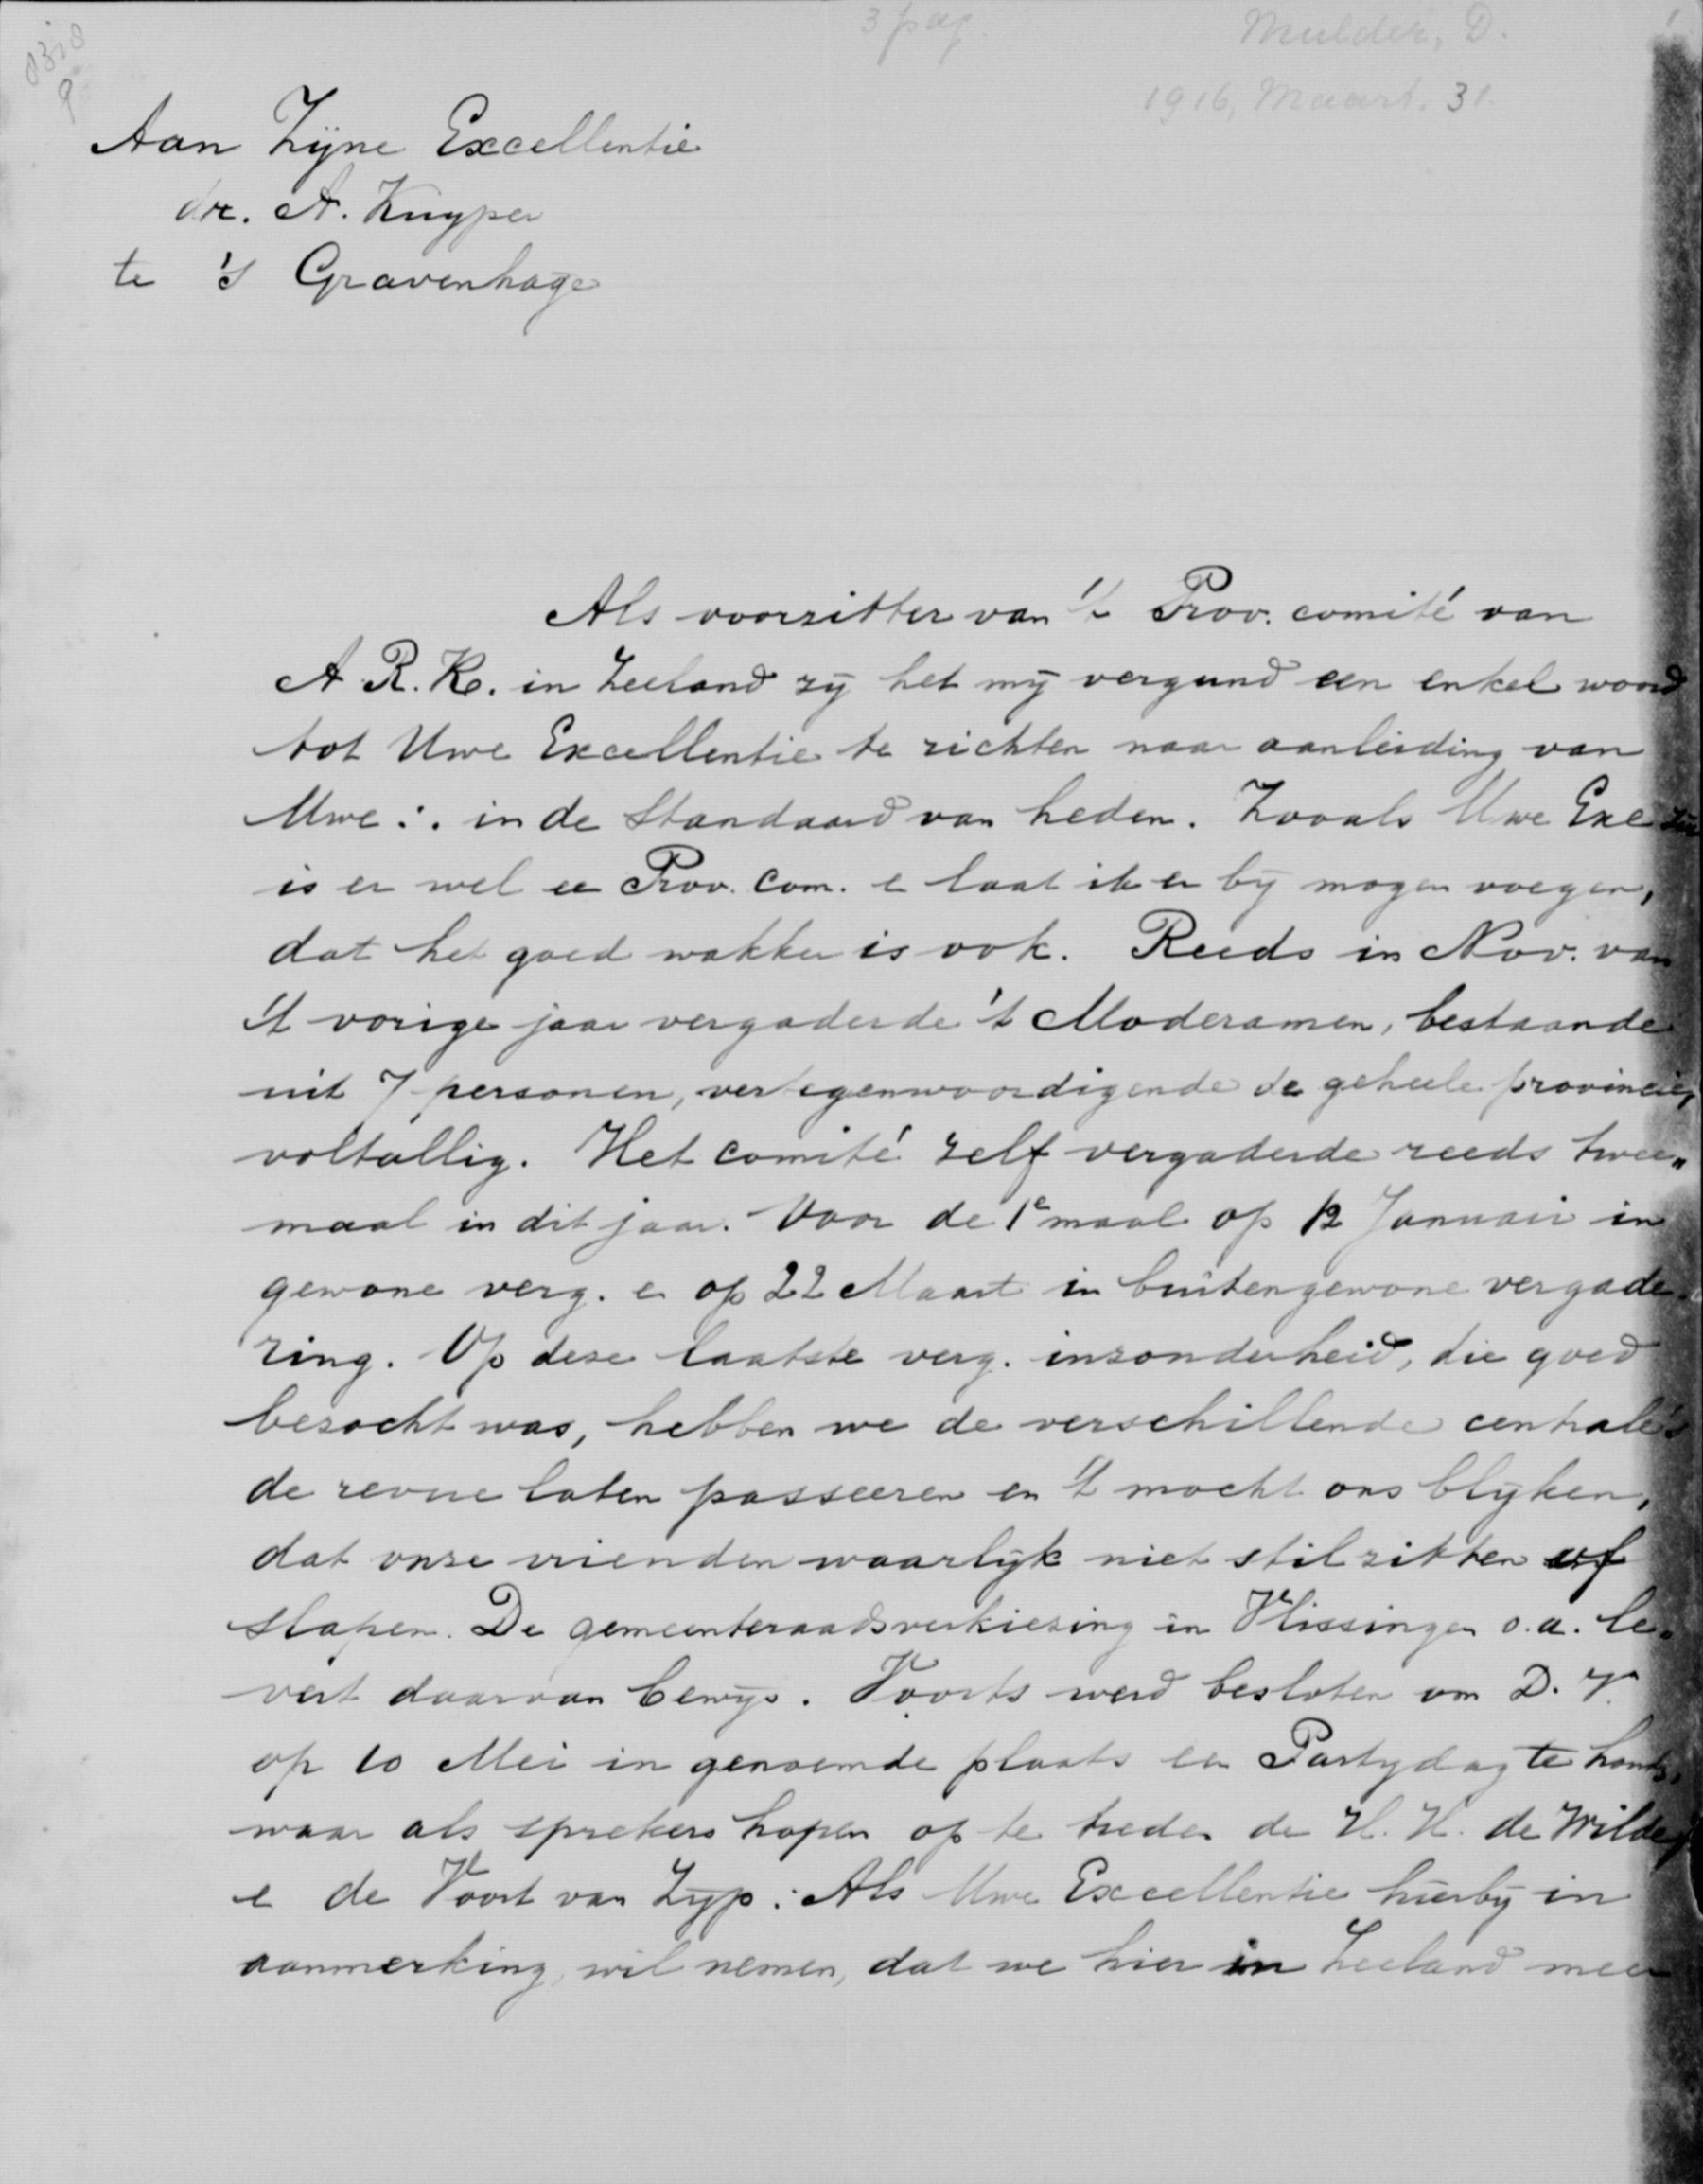 3 pag.
Mulder, D.
1916, Maart. 31.
Aan Zijne Excellentie
dr. A. Kuyper
te 's Gravenhage
Als voorzitter van 't Prov. comité van
A. R. K. in Zeeland zij het mij vergund een enkel woord
tot Uwe Excellentie te richten naar aanleiding van
Uwe ∴ in de Standaard van heden. Zooals Uwe Exc
is er wel ee Prov. Com. e laat ik er bij mogen voegen,
dat het goed wakker is ook. Reeds in Nov. van
't vorige jaar vergaderde 't Moderamen, bestaande
uit 7 personen, vertegenwoordigende de geheele provincie,
voltallig. Het comité zelf vergaderde reeds twee„
maal in dit jaar. Voor de 1e maal op 12 Januari in
gewone verg. e op 22 Maart in buitengewone vergade
ring. Op deze laatste verg. inzonderheid, die goed
bezocht was, hebben we de verschillende centrale's
de revue laten passeeren en 't mocht ons blijken,
dat onze vrienden waarlijk niet stil zitten of
slapen. De gemeenteraadsverkiezing in Vlissingen o.a. le„
vert daarvan bewijs. Voorts werd besloten om D. V.
op 10 Mei in genoemde plaats een Partijdag te houd,
waar als sprekers hopen op te treden de H. H. de Wilde
e de Voort van Zijp. Als Uwe Excellentie hierbij in
aanmerking wil nemen, dat we hier in Zeeland meer